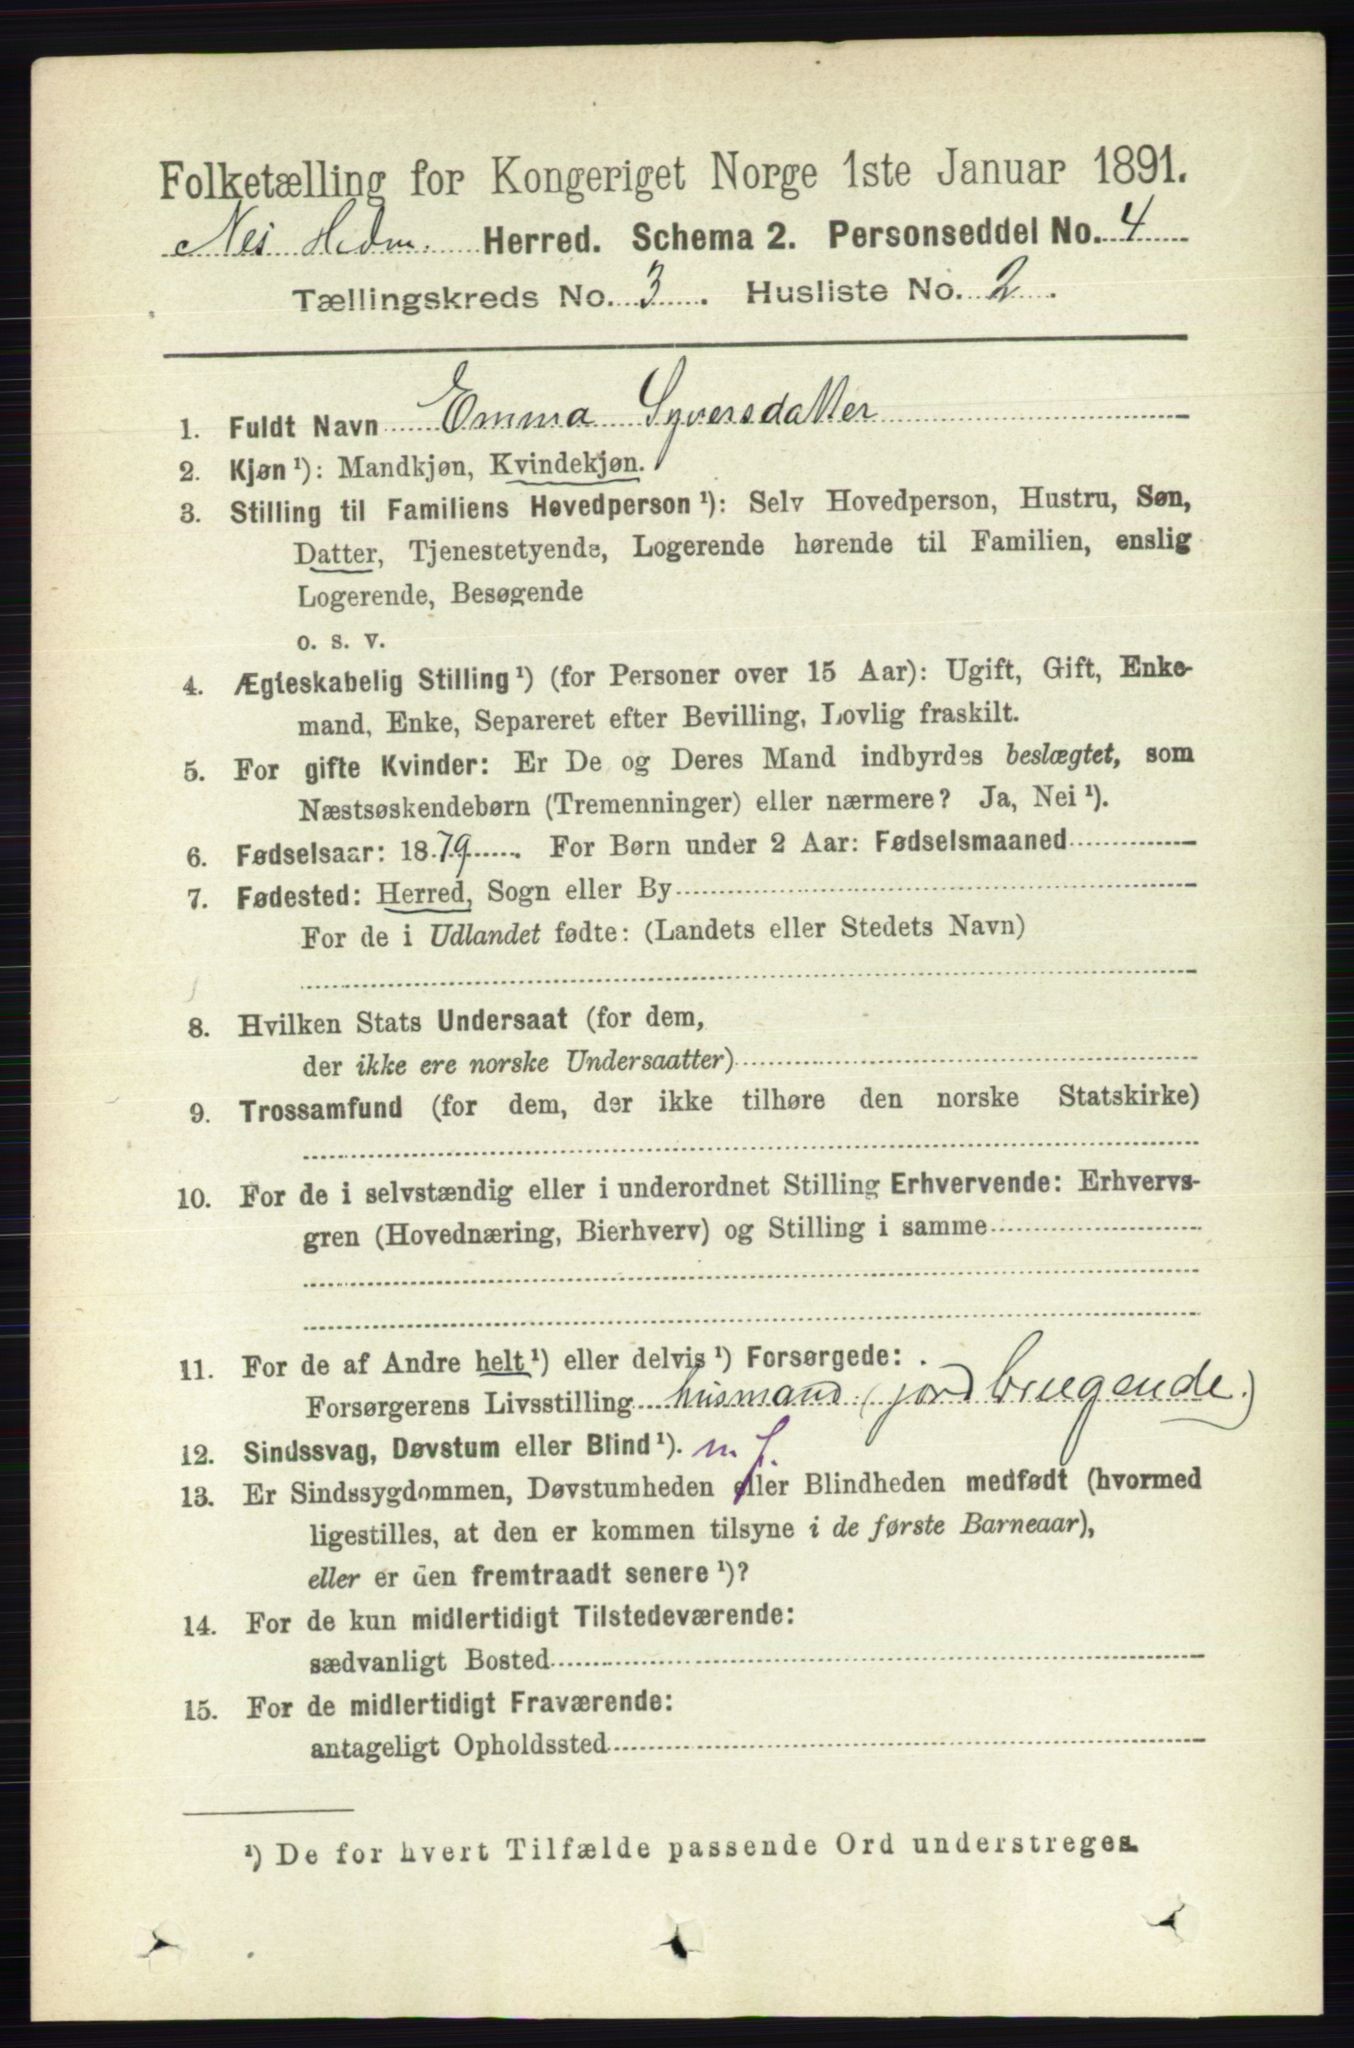 Folketælling for Kongeriget Norge 1ste Januar 1891.
Nes Hedm. Herred. Schema 2. Personseddel No. 4
Tællingskreds No. 3. Husliste No. 2.
1. Fuldt Navn Emma Syversdatter
2. Kjøn ¹): Mandkjøn, Kvindekjøn.
3. Stilling til Familiens Hovedperson ¹): Selv Hovedperson, Hustru, Søn,
Datter, Tjenestetyende, Logerende hørende til Familien, enslig
Logerende, Besøgende
o. s. v.
4. Ægteskabelig Stilling ¹) (for Personer over 15 Aar): Ugift, Gift, Enke-
mand, Enke, Separeret efter Bevilling, Lovlig fraskilt.
5. For gifte Kvinder: Er De og Deres Mand indbyrdes beslægtet, som
Næstsøskendebørn (Tremenninger) eller nærmere? Ja, Nei ¹).
6. Fødselsaar: 1879. For Børn under 2 Aar: Fødselsmaaned
7. Fødested: Herred, Sogn eller By
For de i Udlandet fødte: (Landets eller Stedets Navn)
8. Hvilken Stats Undersaat (for dem,
der ikke ere norske Undersaatter)
9. Trossamfund (for dem, der ikke tilhøre den norske Statskirke)
10. For de i selvstændig eller i underordnet Stilling Erhvervende: Erhvervs-
gren (Hovednæring, Bierhverv) og Stilling i samme
11. For de af Andre helt ¹) eller delvis ¹) Forsørgede:
Forsørgerens Livsstilling husmand (jordbrugende)
12. Sindssvag, Døvstum eller Blind ¹). n f.
13. Er Sindssygdommen, Døvstumheden eller Blindheden medfødt (hvormed
ligestilles, at den er kommen tilsyne i de første Barneaar),
eller er den fremtraadt senere ¹)?
14. For de kun midlertidigt Tilstedeværende:
sædvanligt Bosted
15. For de midlertidigt Fraværende:
antageligt Opholdssted
¹) De for hvert Tilfælde passende Ord understreges.